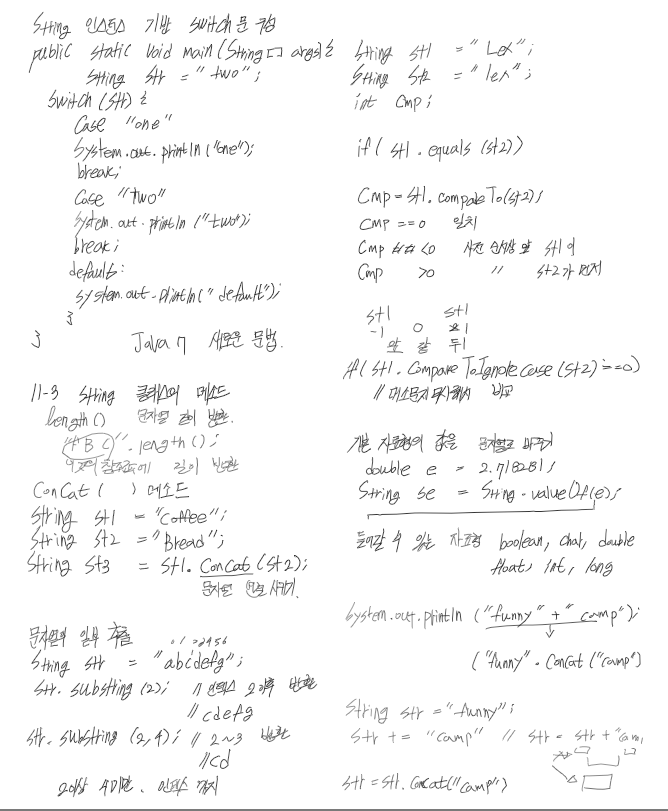 String 인스턴스 기반 switch 문 구성
public static void main (String[] args) {
String str = "two";
switch (str) {
case "one"
System.out.println ("one");
break;
case "two"
System.out.println ("two");
break;
default:
system.out.println (" default");
}
} Java 7 새로운 문법.
11-3 String 클래스의 메소드
length() 문자열 길이 반환
".length();
길이 반환
ConCat ( ) 메소드
String st1 = "Coffee";
String st2 = "Bread";
String st3 = st1. ConCat (st2);
문자열 연결 시키기.
문자열의 일부 추출
0 1 2 3 4 5 6
String str = "abcdefg";
str. substring (2); // 인덱스 2 이후 반환
// cdefg
str. substring (2,4); // 2~3 반환
//cd
2이상 4미만. 인덱스 까지
String st1 = "Lex";
String st2 = "lex";
int cmp;
if( st1. equals (st2))
Cmp = st1. compareTo(st2);
Cmp == 0 일치
Cmp <0 사전 순서상 앞 st1 이
Cmp >0 // st2가 먼저
st1 st1
-1 0 1
앞 같 뒤
if( st1. Compare ToIgnoreCase (st2) ==0)
// 대소문자 무시해서 비교
기본 자료형의 값을 문자열로 바꾸기
double e = 2.718281;
String se = String.valueOf(e);
들어갈 수 있는 자료형 boolean, char, double
float, int, long
System.out.println ("funny" + " camp");
("funny". Concat ("camp")
String str = "funny";
str += "camp" // str = str + "camp
str = str. Concat("camp")